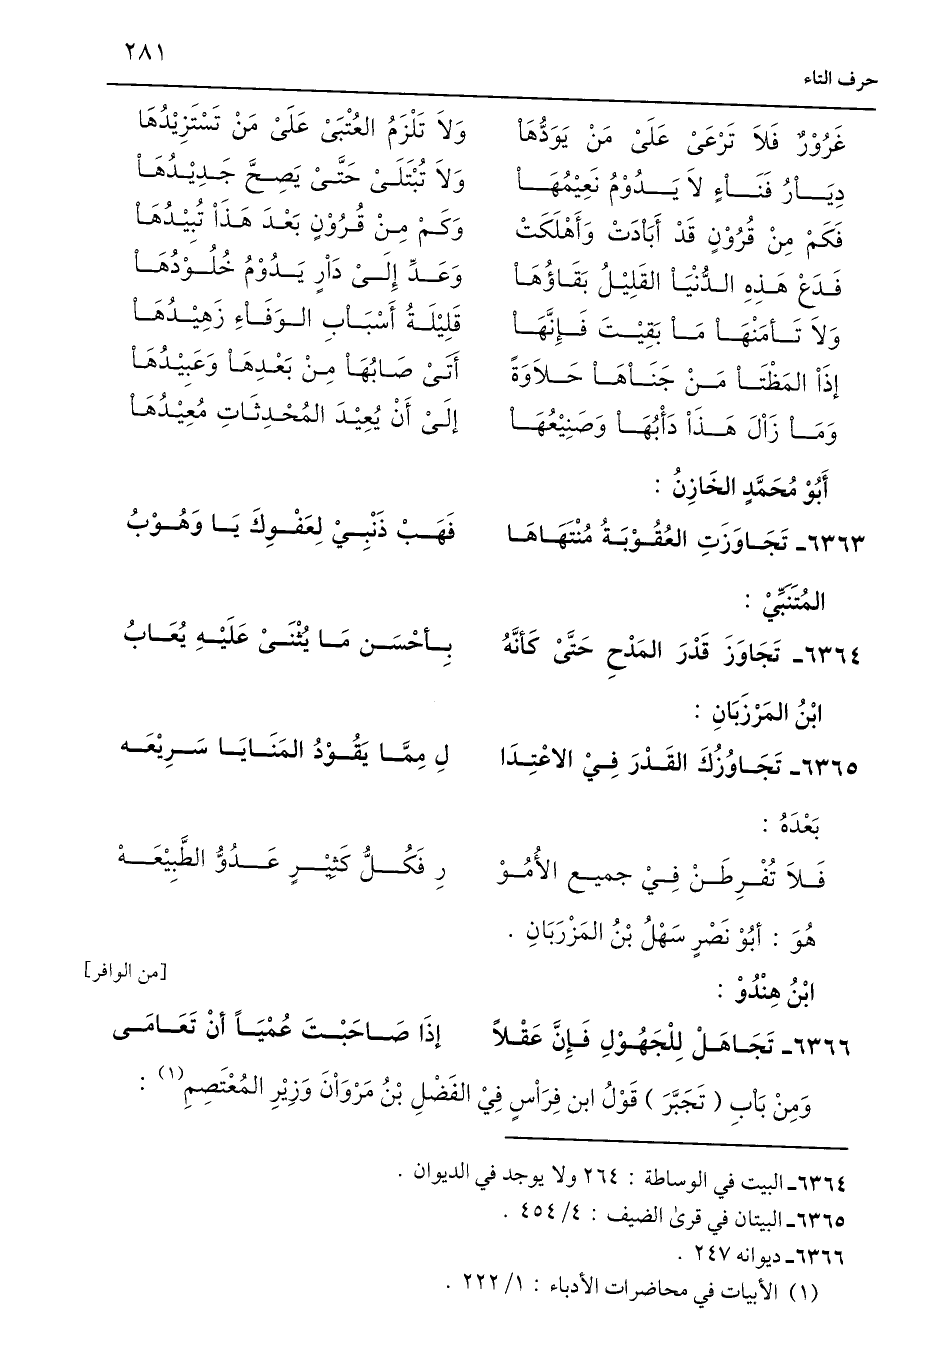 ٢٨١
حرف التاء
غَرُوْرٌ فَلاَ تَرْعَىْ عَلَىْ مَنْ يَوَدُّهَا وَلاَ تَلْزَمُ العُتْبَىْ عَلَىْ مَنْ تَسْتَزِيْدُهَا
دِيَارُ فَنَاءٍ لاَ يَدُوْمُ نَعِيْمُهَا وَلاَ تُبْتَلَىْ حَتَّىْ يَصِحَّ جَدِيْدُهَا
فَكَمْ مِنْ قُرُوْنٍ قَدْ أَبَادَتْ وَأَهْلَكَتْ وَكَمْ مِنْ قُرُوْنٍ بَعْدَ هَذَاْ تُبِيْدُهَا
فَدَعْ هَذِهِ الدُّنْيَاْ القَلِيْلُ بَقَاؤُهَا وَعَدِّ إِلَىْ دَاْرٍ يَدُوْمُ خُلُوْدُهَا
وَلاَ تَأمَنْهَاْ مَاْ بَقِيْتَ فَإِنَّهَا قَلِيْلَةُ أَسْبَابِ الوَفَاْءِ زَهِيْدُهَا
إِذَاْ المَظْتَاْ مَنْ جَنَاهَاْ حَلاَوَةً أَتَىْ صَابُهَاْ مِنْ بَعْدِهَاْ وَعَبِيْدُهَا
وَمَاْ زَاْلَ هَذَاْ دَأبُهَاْ وَصَنِيْعُهَا إِلَىْ أَنْ يُعِيْدَ المُحْدِثَاتِ مُعِيْدُهَا
أَبُوْ مُحَمَّدٍ الخَازِنُ :
٦٣٦٣ـ تَجَاوَزَتِ العُقُوْبَةُ مُنْتَهَاهَا فَهَبْ ذَنْبِيْ لِعَفْوِكَ يَا وَهُوْبُ
المُتَنَبِّيْ :
٦٣٦٤ـ تَجَاوَزَ قَدْرَ المَدْحِ حَتَّىْ كَأَنَّهُ بِأَحْسَنِ مَا يُثْنَىْ عَلَيْهِ يُعَابُ
ابْنُ المَرْزَبَانِ :
٦٣٦٥ـ تَجَاوُزُكَ القَدْرَ فِيْ الاعْتِدَا لِ مِمَّا يَقُوْدُ المَنَايَا سَرِيْعَه
بَعْدَهُ :
فَلاَ تُفْرِطَنْ فِيْ جميع الأُمُوْ رِ فَكُلُّ كَثِيْرٍ عَدُوُّ الطَّبِيْعَهْ
هُوَ : أَبُوْ نَصْرٍ سَهْلُ بْنُ المَرْزبَانِ .
ابْنُ هِنْدُوْ : [من الوافر]
٦٣٦٦ـ تَجَاهَلْ لِلْجَهُوْلِ فَإِنَّ عَقْلاً إِذَا صَاحَبْتَ عُمْيَاً أَنْ تَعَامَى
وَمِنْ بَاْبِ ( تَجَبَّرَ ) قَوْلُ ابن فِرَاْسٍ فِيْ الفَضْلِ بْنُ مَرْوَاْنَ وَزِيْرِ المُعْتَصِمِ(١) :
٦٣٦٤ـ البيت في الوساطة : ٢٦٤ ولا يوجد في الديوان .
٦٣٦٥ـ البيتان في قرىٰ الضيف : ٤/ ٤٥٤ .
٦٣٦٦ـ ديوانه ٢٤٧ .
(١) الأبيات في محاضرات الأدباء : ١/ ٢٢٢ .